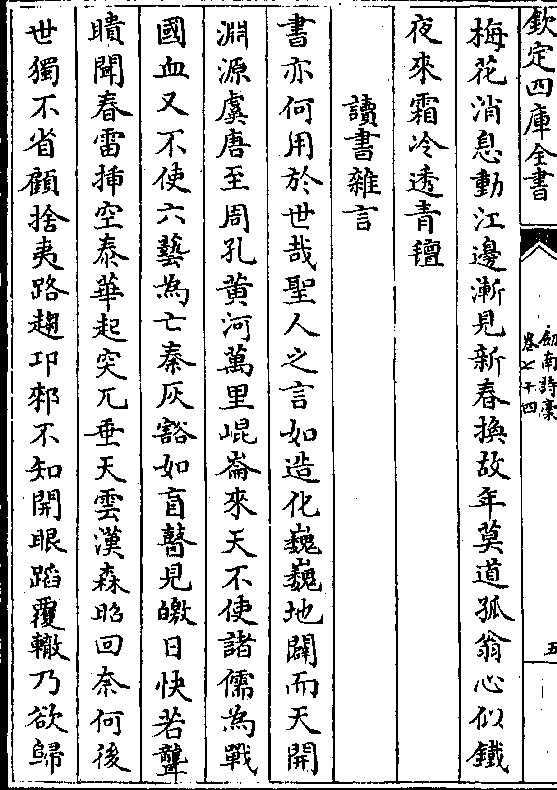 欽定四庫全書
劍南詩槀
卷七十四
五
梅花消息動江邊漸見新春換故年莫道孤翁心似鐵
夜來霜冷透青氊
讀書雜言
書亦何用於世哉聖人之言如造化巍巍地闢而天開
淵源虞唐至周孔黄河萬里崐崙來天不使諸儒為戰
國血又不使六藝為亡秦灰豁如盲瞽見皦日快若聾
聵聞春雷揷空泰華起突兀垂天雲漢森昭回奈何後
世獨不省顧捨夷路趨卭郲不知開眼蹈覆轍乃欲歸